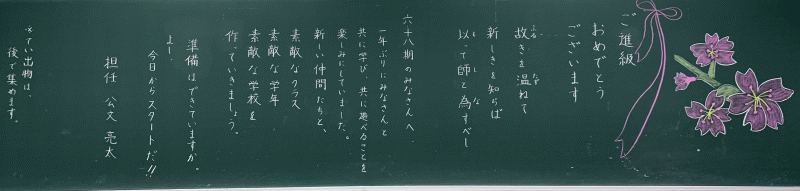 ご進級
おめでとう
ございます
故きを温ねて
新しきを知らば
以て師と為すべし
六十八期のみなさんへ
一年ぶりにみなさんと
共に学び、共に遊べることを
楽しみにしていました。
新しい仲間たちと、
素敵なクラス
素敵な学年
素敵な学校を
作っていきましょう。
準備はできていますか。
よし、
今日からスタートだ!!
担任 公文 亮太
※て、出物は、
後で集めます。